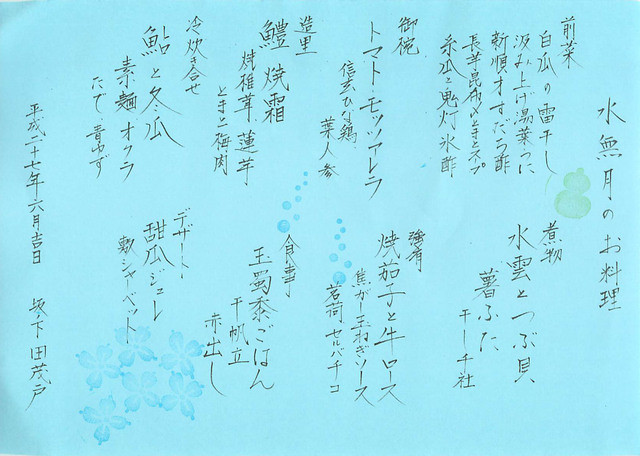 水無月のお料理
前菜
白瓜の雷干し
汲み上げ湯葉つに
新順才すだち酢
長芋昆布〆とまとネブ
糸瓜と鬼灯氷酢
御椀
トマト・モッツアレラ
信玄ひな鶏
葉人参
造里
鱧焼霜
焼椎茸 蓮芋
とまと梅肉
冷炊き合せ
鮎と冬瓜
素麺 オクラ
たて 青ゆず
煮物
水雲とつぶ貝
薯ふた
干し千社
強肴
焼茄子と牛ロース
焦がし玉ねぎソース
茗荷 セルバチコ
食事
玉蜀黍ごはん
干帆立
赤出し
デザート
甜瓜ジュレ
シャーベット
平成二十七年六月吉日
坂下 田茂戸